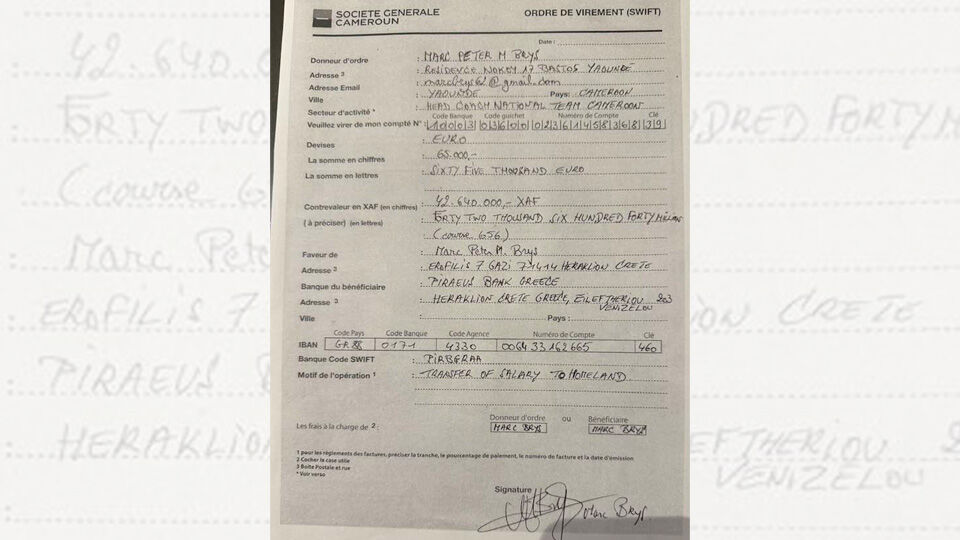 SOCIETE GENERALE
CAMEROUN
ORDRE DE VIREMENT (SWIFT)
Date :
Donneur d'ordre : MARC PETER M BRYS
Adresse ³ : RESIDENCE NOKEY 17 BASTOS YAOUNDE
Adresse Email : marcbrys62@gmail.com
Ville : YAOUNDE Pays: CAMEROON
Secteur d'activité * : HEAD COACH NATIONAL TEAM CAMEROON
Code Banque Code guichet Numéro de Compte Clé
Veuillez virer de mon compte N° 10003 03600 02361458368 39
Devises : EURO
La somme en chiffres : 65.000,-
La somme en lettres : SIXTY FIVE THOUSAND EURO
Contrevaleur en XAF (en chiffres) : 42.640.000,- XAF
( à préciser) (en lettres) : FORTY TWO THOUSAND SIX HUNDRED FORTY
(course 656)
Faveur de : Marc Peter M. Brys
Adresse ³ : EROFILIS 7 GAZI 71414 HERAKLION CRETE
Banque du bénéficiaire : PIRAEUS BANK GREECE
Adresse ³ : HERAKLION CRETE GREECE, EILEFTHERIOU 203
VENIZELOU
Ville : Pays :
Code Pays Code Banque Code Agence Numéro de Compte Clé
IBAN GR 0171 4330 460
Banque Code SWIFT : PIRBGRAA
Motif de l'opération ¹ : TRANSFER OF SALARY TO HOMELAND
Donneur d'ordre ou Bénéficiaire
Les frais à la charge de ² : MARC BRYS MARC BRYS
1 pour les règlements des factures, préciser la tranche, le pourcentage de paiement, le numéro de facture et la date d'émission
2 Cocher la case utile
3 Boite Postale et rue
* Voir verso
Signature
Marc Brys